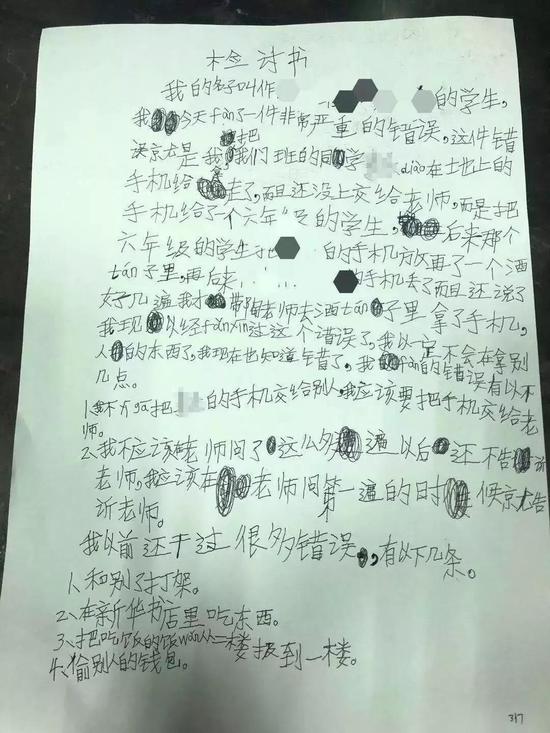 检讨书
我的名子叫作 的学生,
我今天fàn了一件非常严重的错误,这件错
误京尤是我把我们班的同学 diào在土地上的
手机给拿走了,而且还没上交给老师,而是把
手机给了一个六年级的学生, 后来那个
六年级的学生把 的手机放再了一个酒
tán子里,再后来 的手机丢了而且还说了
好几遍我才带着老师去酒tán子里拿了手机,
我现以经fǎnxǐng过这个错误了,我以一定不会在拿别
人的东西了,我现在也知道错了,我fàn的错误有以不
几点。
1、我不应gāi把 的手机交给别人,我应该要把手机交给老
师。
2、我不应该老师问了这么多遍以后还不告诉
老师,我应该在老师问第一遍的日时候京尤告
诉老师。
我以前还干过很多错误,有以下几条。
1、和别了打架。
2、在新华书店里吃东西。
3、把吃饭的饭wǎn从二楼扱到一楼。
4、偷别人的钱包。
317